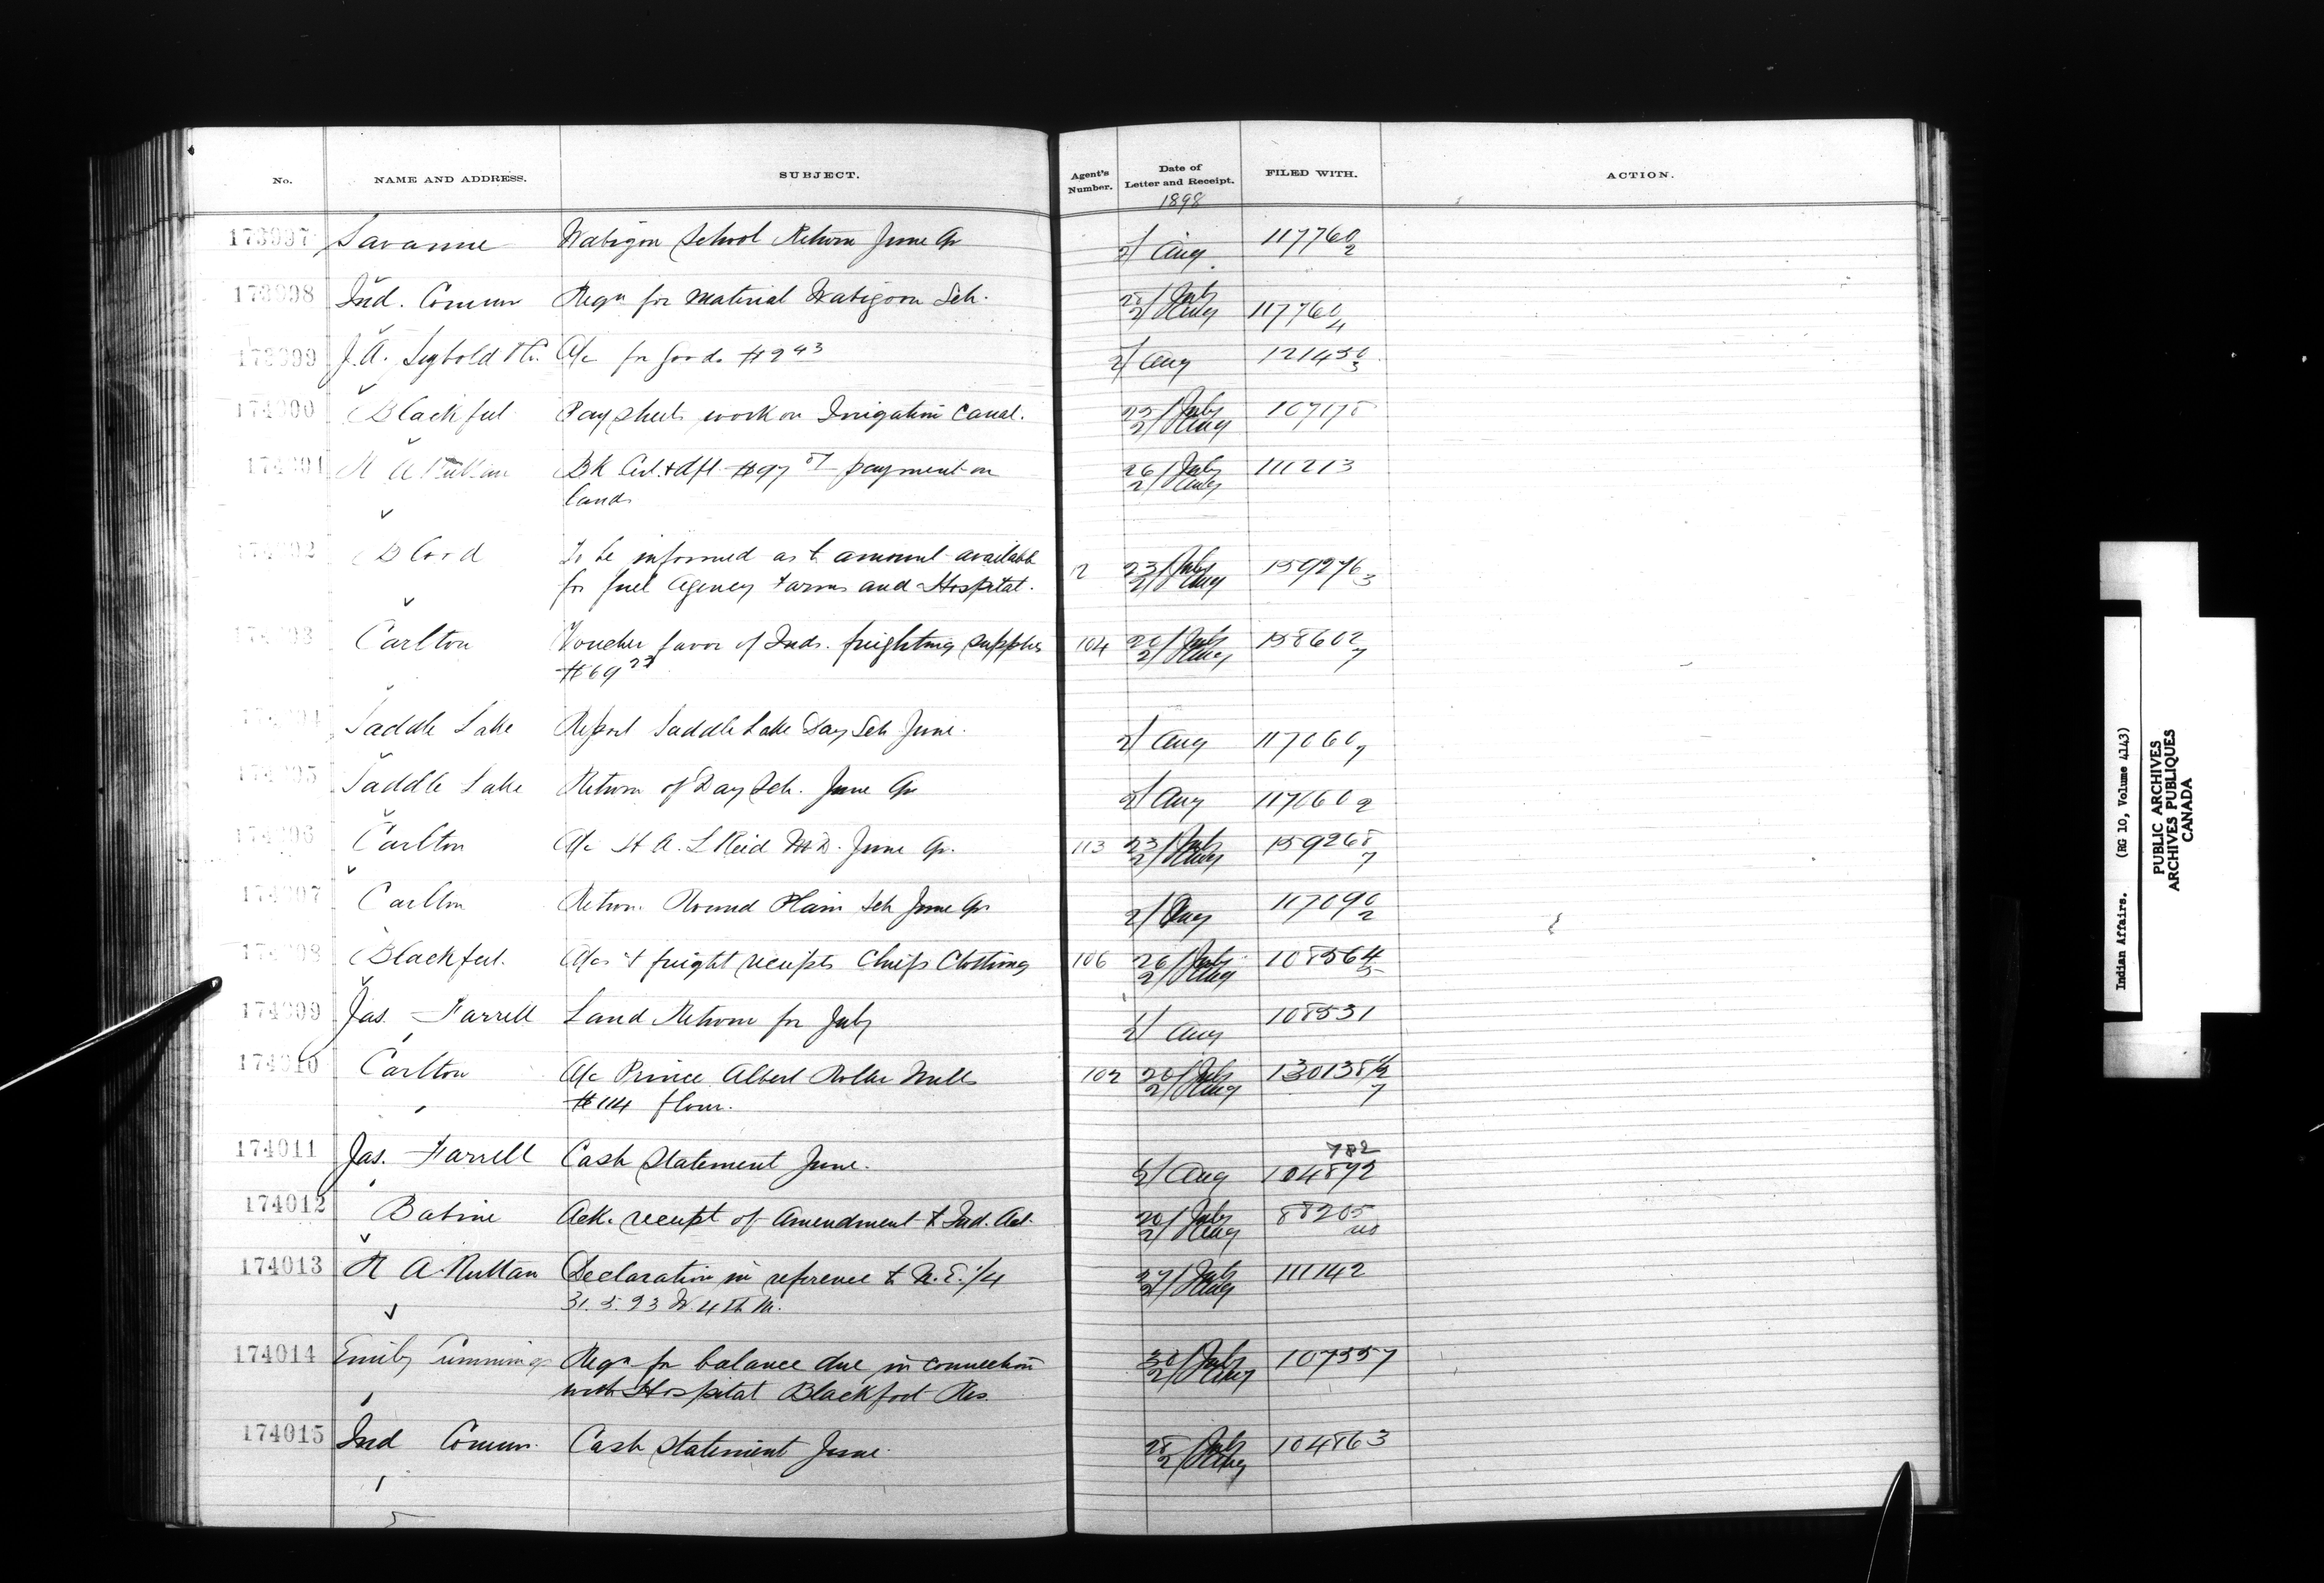 No. NAME AND ADDRESS. SUBJECT. Agent's Number. Date of Letter and Receipt. FILED WITH. ACTION.
1898
173997 Savanne Wabigon School Return June Qr 2/ Aug 117760 2
173998 Ind. Commr Reqn for material Wabigoon Sch. 28/July 2/Aug 117760 4
173999 J. A. Seybold & Co. A/c for goods $2 43 2/ Aug 121450 3
174000 Blackfeet Pay sheets work on Irrigation Canal. 25/July 2/Aug 107178
174001 R A Ruttan Bk Cert. & dft $97 payment on 26/July 2/Aug 111213
land
174002 Blood To be informed as to amount available
for fuel Agency Farms and Hospital. 2 23/July 2/Aug 159276 3
174003 Carlton Voucher favor of Inds. freighting supplies 104 20/July 2/Aug 158602 7
$69 23
174004 Saddle Lake Report Saddle Lake Day Sch June. 2/ Aug 117060 7
174005 Saddle Lake Return of Day Sch. June Qr 2/ Aug 117060 2
174006 Carlton A/c H A. L Reid M.D. June Qr. 113 23/July 2/Aug 159268 7
174007 Carlton Return Round Plain Sch June Qr 2/ Aug 117090 2
174008 Blackfeet. A/cs & freight receipts Chiefs Clothing 106 26/July 2/Aug 108564 5
174009 Jas. Farrell Land Return for July 2/ Aug 108531
174010 Carlton A/c Prince Albert Roller Mills 102 20/July 2/Aug 130138 7
$114 flour.
174011 Jas. Farrell Cash Statement June. 2/ Aug 104872
782
174012 Babine Ack. receipt of Amendment to Ind. Act. 20/July 2/Aug 88205
174013 R A Ruttan Declaration in reference to N. E. 1/4 27/July 2/Aug 111142
31. 5. 23 W 4th M.
174014 Emily Cummings Reqn for balance due in connection 30/July 2/Aug 107557
with Hospital Blackfoot Res.
174015 Ind Commr. Cash statement June. 28/July 2/Aug 104863
Indian Affairs. (RG 10, Volume 4143)
PUBLIC ARCHIVES
ARCHIVES PUBLIQUES
CANADA